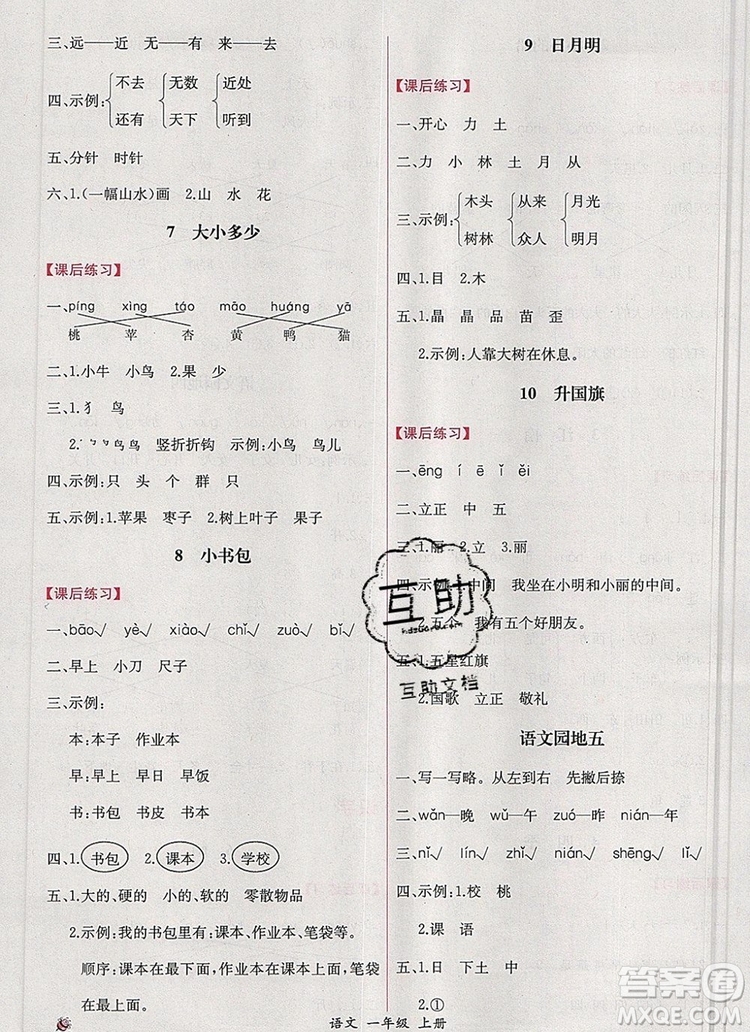 三、远——近 无——有 来——去
四、示例：不去 无数 近处
还有 天下 听到
五、分针 时针
六、1.(一幅山水)画 2.山 水 花
7 大小多少
【课后练习】
一、píng xìng táo māo huáng yā
桃 苹 杏 黄 鸭 猫
二、1.小牛 小鸟 2.果 少
三、1.犭 鸟
竖折折钩 示例:小鸟 鸟儿
四、示例:只 头 个 群 只
五、示例:1.苹果 枣子 2.树上叶子 果子
8 小书包
【课后练习】
一、bāo√ yè√ xiào√ chǐ√ zuò√ bǐ√
二、早上 小刀 尺子
三、示例:
本:本子 作业本
早:早上 早日 早饭
书:书包 书皮 书本
四、1.书包 2.课本 3.学校
五、1.大的、硬的 小的、软的 零散物品
2.示例:我的书包里有:课本、作业本、笔袋等。
顺序:课本在最下面,作业本在课本上面,笔袋
在最上面。
9 日月明
【课后练习】
一、开心 力 土
二、力 小 林 土 月 从
三、示例：木头 从来 月光
树林 众人 明月
四、1.目 2.木
五、1.晶 晶 品 苗 歪
2.示例:人靠大树在休息。
10 升国旗
【课后练习】
一、ēng í ē ǐ ěi
二、立正 中 五
三、1.丽 2.立 3.丽
四、示例 中间 我坐在小明和小丽的中间。
2.五个 我有五个好朋友。
五、1.五星红旗
2.国歌 立正 敬礼
语文园地五
一、写一写略。从左到右 先撇后捺
二、wǎn—晚 wǔ—午 zuó—昨 nián—年
三、nǐ√ lín√ nián√ shēng√ lì√
四、示例:1.校 桃
2.课 语
五、1.日 下土 中
2.①
互助
hdzuowen.com
互助文档
语文 一年级 上册
答案圈
MXQE.COM